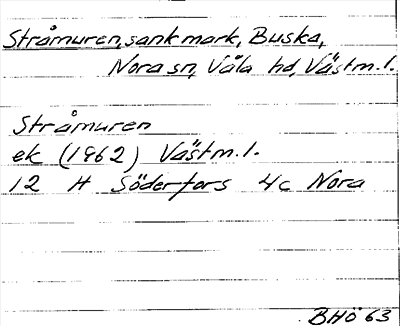 Stråmuren, sank mark, Buska,
Nora sn, Våla hd, Västm. l.
Stråmuren
ek (1962) Västm. l.
12 H Söderfors 4c Nora
BHÖ 63